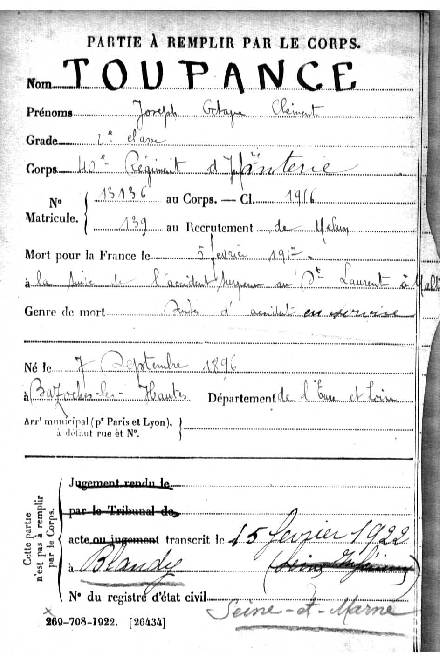 PARTIE À REMPLIR PAR LE CORPS.
Nom TOUPANCE
Prénoms Joseph Octave Clément
Grade 2e classe
Corps Régiment d'Infanterie
Nº Matricule. 13136 au Corps. — Cl. 1916
139 au Recrutement de Melun
Mort pour la France le 5 février
à la suite de l'accident survenu au St Laurent à
Genre de mort d'accident en service
Né le 7 Septembre 1896
à Bazoches-les-Hautes Département de l'Eure et Loir
Arrt municipal (pr Paris et Lyon),
à défaut rue et Nº.
Cette partie n'est pas à remplir par le Corps.
Jugement rendu le
par le Tribunal de
acte ou jugement transcrit le 15 février 1922
à Blandy
Nº du registre d'état civil
Seine-et-Marne
269-708-1922. [26434]